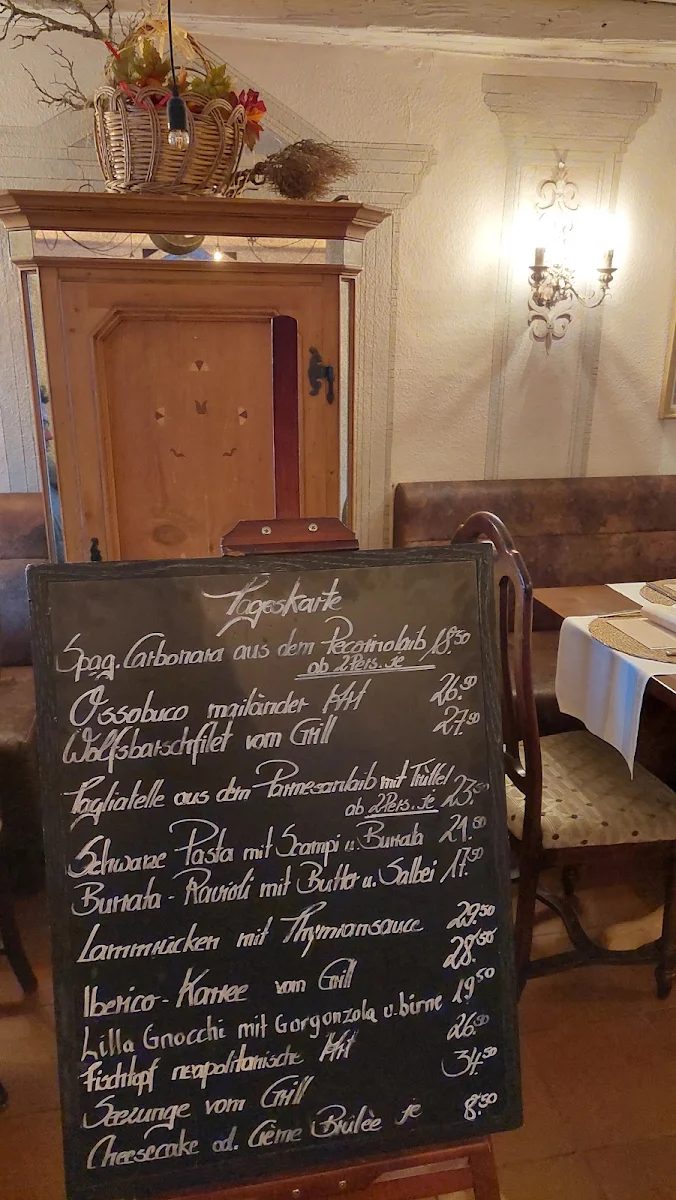 Tageskarte
Spag. Carbonara aus dem Pecorinolaib 18.50
ab 2 Pers. je
Ossobuco mailänder Art 26.50
Wolfsbarschfilet vom Grill 27.50
Tagliatelle aus dem Parmesanlaib mit Trüffel 23.50
ab 2 Pers. je
Schwarze Pasta mit Scampi u. Burrata 21.50
Burrata-Ravioli mit Butter u. Salbei 17.50
Lammrücken mit Thymiansauce 29.50
Iberico-Karree vom Grill 28.50
Lilla Gnocchi mit Gorgonzola u. birne 19.50
Fischtopf neapolitanische Art 26.50
Seezunge vom Grill 34.50
Cheesecake od. Crème Brûlèe je 8.50